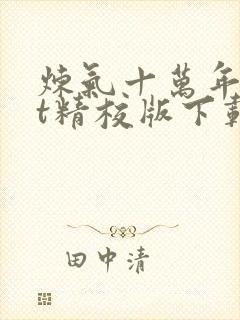 煉氣十萬年
t精校版下載
田中清